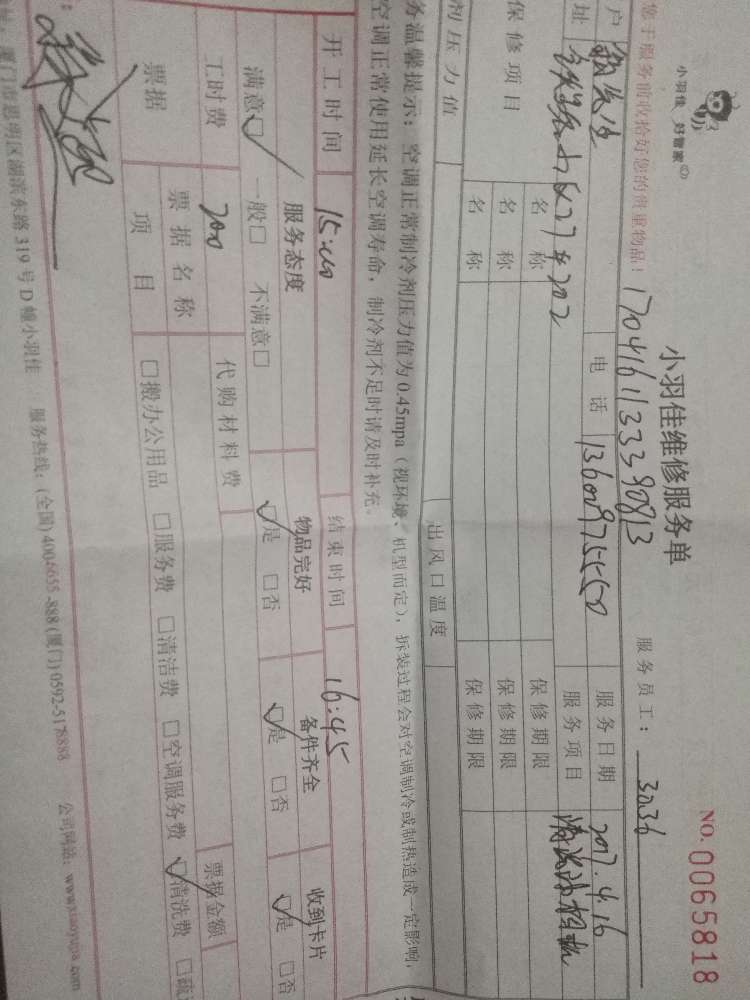 小羽佳 好管家
小羽佳维修服务单
NO. 0065818
您于服务前收拾好您的贵重物品!
17041611333390813
服务员工:
户
先生
电 话
服务日期 2017.4.16
址
27#202
服务项目 清洗
保 修 项 目
名 称
保 修 期 限
名 称
保 修 期 限
名 称
保 修 期 限
剂 压 力 值
出 风 口 温 度
务温馨提示:空调正常制冷剂压力值为0.45mpa(视环境、机型而定),拆装过程会对空调制冷或制热造成一定影响,
空调正常使用延长空调寿命,制冷剂不足时请及时补充。
开 工 时 间 15:00
结 束 时 间 16:45
服务态度
物品完好
备件齐全
收到卡片
满意□ 一般□ 不满意□
□是 □否
□是 □否
□是 □否
工时费 200
代 购 材 料 费
票据
票 据 名 称
票据金额
项 目
□搬办公用品 □服务费 □清洁费 □空调服务费 □清洗费 □疏
厦门市思明区湖滨东路 319 号 D 幢小羽佳 服务热线:(全国) 4004655-888 (厦门) 0592-5178888 公司网站:www.xiaoyujia.com